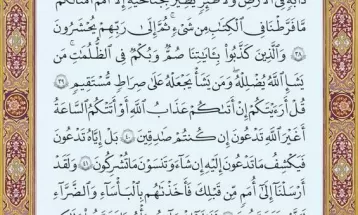 دَآبَّةٍ فِى ٱلْأَرْضِ وَلَا طَٰٓئِرٍ يَطِيرُ بِجَنَاحَيْهِ إِلَّآ أُمَمٌ أَمْثَالُكُم
مَّا فَرَّطْنَا فِى ٱلْكِتَٰبِ مِن شَىْءٍ ۚ ثُمَّ إِلَىٰ رَبِّهِمْ يُحْشَرُونَ
٣٨ وَٱلَّذِينَ كَذَّبُوا۟ بِـَٔايَٰتِنَا صُمٌّ وَبُكْمٌ فِى ٱلظُّلُمَٰتِ ۗ مَن
يَشَإِ ٱللَّهُ يُضْلِلْهُ وَمَن يَشَأْ يَجْعَلْهُ عَلَىٰ صِرَٰطٍ مُّسْتَقِيمٍ ٣٩
قُلْ أَرَءَيْتَكُمْ إِنْ أَتَىٰكُمْ عَذَابُ ٱللَّهِ أَوْ أَتَتْكُمُ ٱلسَّاعَةُ
أَغَيْرَ ٱللَّهِ تَدْعُونَ إِن كُنتُمْ صَٰدِقِينَ ٤٠ بَلْ إِيَّاهُ تَدْعُونَ
فَيَكْشِفُ مَا تَدْعُونَ إِلَيْهِ إِن شَآءَ وَتَنسَوْنَ مَا تُشْرِكُونَ ٤١ وَلَقَدْ
أَرْسَلْنَآ إِلَىٰٓ أُمَمٍ مِّن قَبْلِكَ فَأَخَذْنَٰهُم بِٱلْبَأْسَآءِ وَٱلضَّرَّآءِ